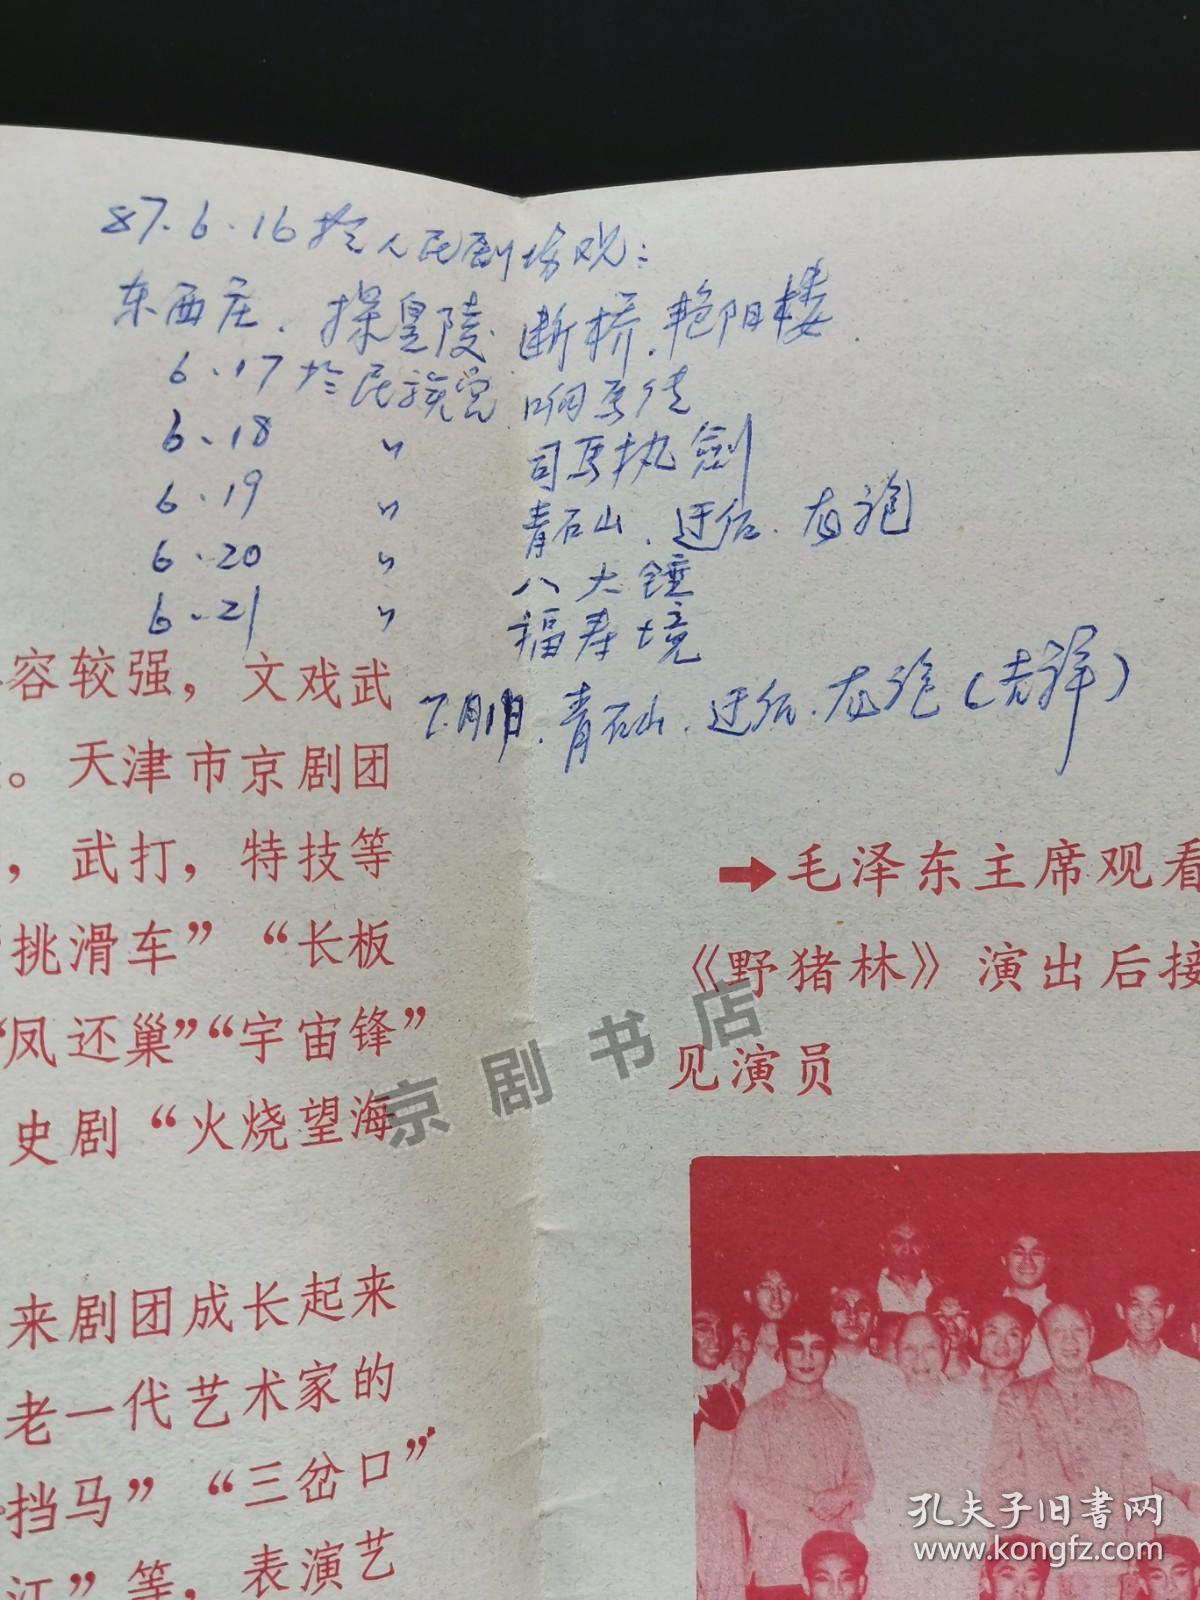 87.6.16 於人民剧场观:
东西庄、探皇陵、断桥、艳阳楼
6.17 於民族宫 响马传
6.18 〃 司马执剑
6.19 〃 青石山、迓后、龙袍
6.20 〃 八大锤
6.21 〃 福寿境
青石山、迓后、龙袍(吉祥)
容较强,文戏武
。天津市京剧团
,武打,特技等
“挑滑车”“长板
“凤还巢”“宇宙锋”
史剧“火烧望海
来剧团成长起来
老一代艺术家的
挡马”“三岔口”
江”等,表演艺
➡毛泽东主席观看
《野猪林》演出后接
见演员
京剧书店
孔夫子旧书网
www.kongfz.com